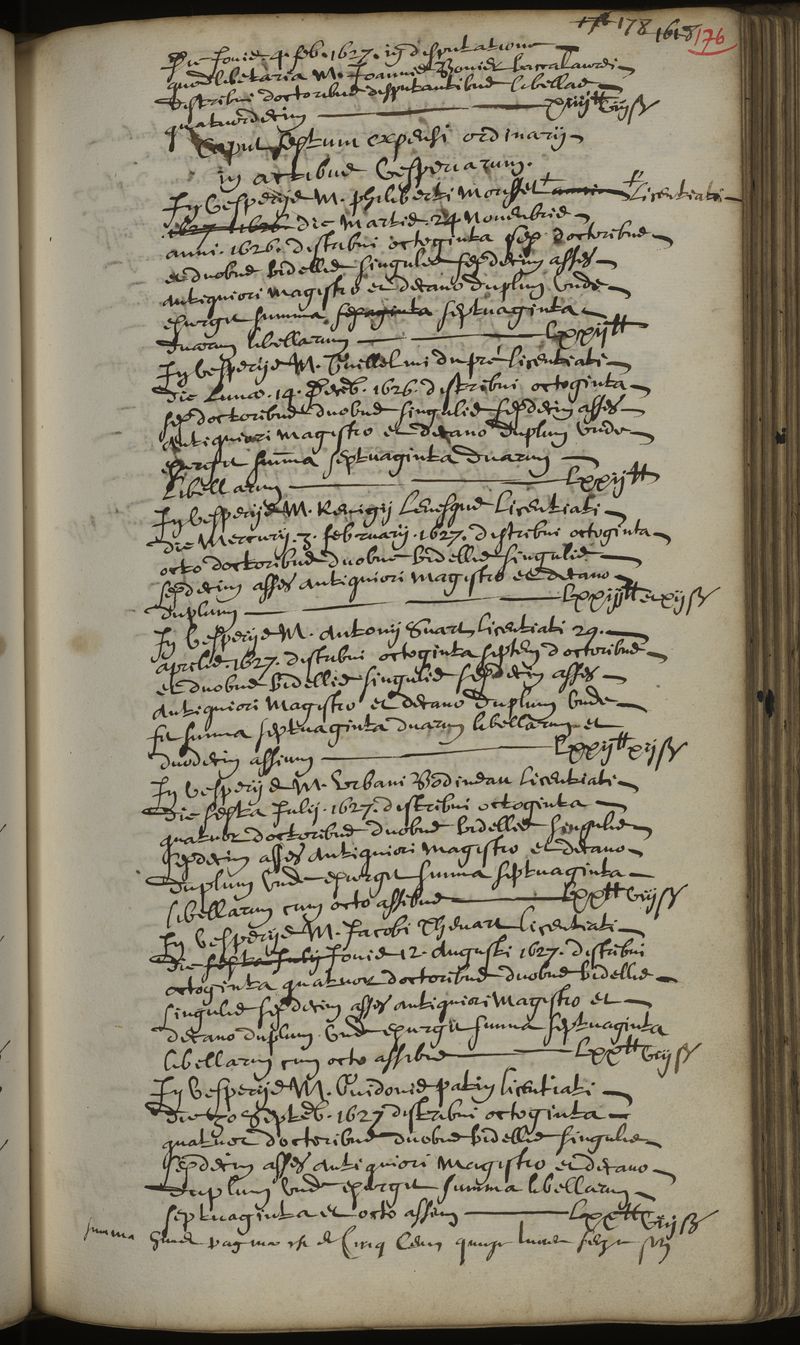 178 1618 176
Die Jovis 4. feb. 1627. in disputatione
quodlibetaria M. Joannis Bourier baccalaurei
distribui doctoribus disputantibus libellas
quatuordecim xiiij tt viij ß
Caput septimum expensi ordinarij
in actibus Vesperiarum.
In Vesperijs M. philiberti Morisset + Licentiati
die Martis 24 Novembris
anni 1626. distribui octoginta sex doctoribus
et duobus bidellis singulis sexdecim asses
antiquiori Magistro et decano duplum unde
exurgit summa septuaginta
duarum libellarum Lxxij tt
In Vesperijs M. Guillelmi dupre licentiati
die Lunae. 14. Decēb. 1626. distribui octoginta
sex doctoribus duobus singulis sexdecim asses
antiquiori magistro et decano duplum unde
exurgit summa septuaginta duarum
Libellarum Lxxij tt
In Vesperijs M. Remigij Levesque licentiati
die Mercurij. 3. februarij. 1627. distribui octoginta
octo doctoribus duobus bidellis singulis
sexdecim asses antiquiori Magistro et decano
duplum Lxxiij tt et xij ß
In Vesperijs M. Antonij Suart licentiati 29.
aprilis 1627. distribui octoginta septem doctoribus
et duobus bidellis singulis sexdecim asses
antiquiori Magistro et decano duplum unde
fit summa septuaginta duarum libellarum et
duodecim assium Lxxij tt xij ß
In Vesperijs M. Urbani Bodineau licentiati
die sexta Julij. 1627. distribui octoginta
quatuor doctoribus duobus bidellis singulis
sexdecim asses antiquiori Magistro et decano
duplum unde exurgit summa septuaginta
libellarum cum octo assibus Lxx tt viij ß
In Vesperijs M. Jacobi Thevart licentiati
die sexta July Jovis 12. Augusti 1627. distribui
octoginta quatuor doctoribus duobus bidellis
singulis sexdecim asses antiquiori Magistro et
decano duplum unde exurgit summa septuaginta
libellarum cum octo assibus Lxx tt viij ß
In Vesperijs M. Guidonis patin licentiati
die 30 Septēb. 1627 distribui octoginta
quatuor doctoribus duobus bidellis singulis
sexdecim asses antiquiori Magistro et decano
duplum unde exurgit summa libellarum
septuaginta et octo assium Lxx tt viij ß
summa paginae est de Cinq Cens quinze livres seize